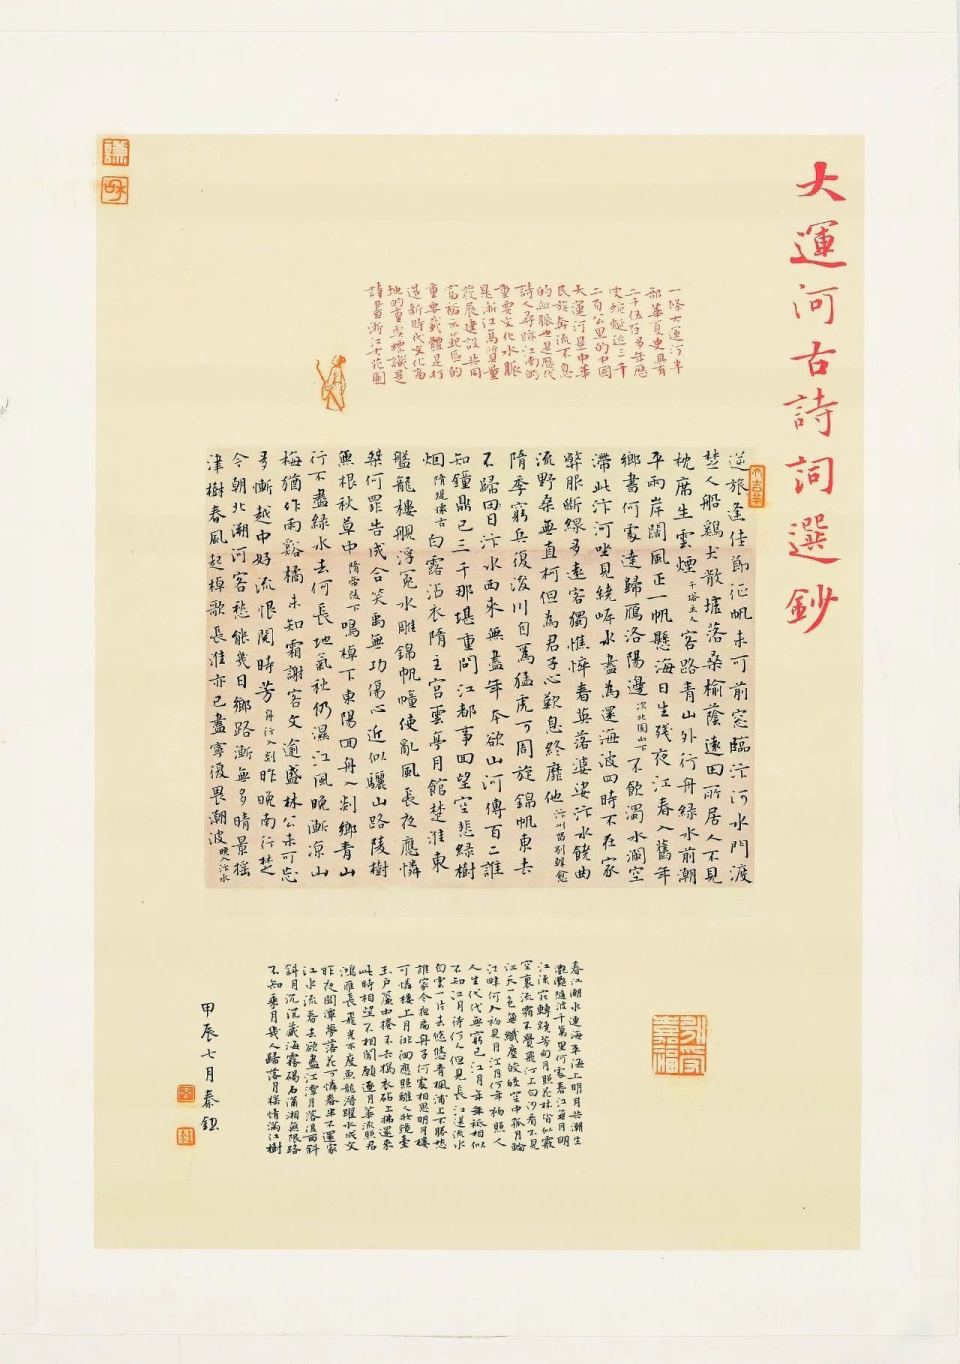 大運河古詩詞選鈔
一條大運河半
部華夏史具有
二千伍百多年歷
史蜿蜒近三千
二百公里的中國
大運河是中華
民族奔流不息
的血脈也是歷代
詩人尋跡江南的
重要文化水脈
是浙江高質量
發展建設共同
富裕示范區的
重要載體是打
造新時代文化高
地的重要標識是
詩畫浙江大花園
大吉羊
逆旅逢佳節征帆未可前窓臨汴河水門渡
楚人船雞犬散墟落桑榆蔭遠田所居人不見
枕席生雲煙 千塔主人 客路青山外行舟綠水前潮
平兩岸闊風正一帆懸海日生殘夜江春入舊年
鄉書何處達歸雁洛陽邊 次北固山下 不飲濁水瀾空
滯此汴河坐見繞岸水盡為還海波四時不在家
弊服斷線多遠客獨憔悴春英落婆娑汴水饒曲
流野桑無直柯但為君子心歎息終靡他 汴州留別韓愈
隋季窮兵復浚川自為猛虎可周旋錦帆東去
不歸日汴水西來無盡年本欲山河傳百二誰
知鐘鼎已三千那堪重問江都事回望空悲綠樹
烟 隋堤懷古 白露沾衣隋主宮雲亭月館楚淮東
盤龍樓艦浮冤水雕錦帆幢使亂風長夜應憐
桀何罪告成合笑禹無功傷心近似驪山路陵樹
無根秋草中 隋帝陵下 鳴棹下東陽回舟入剡鄉青山
行不盡綠水去何長地氣秋仍濕江風晚漸涼山
梅猶作雨谿橘未知霜謝客文逾盛林公未可忘
多慚越中好流恨閱時芳 舟行入剡 昨晚南行楚
今朝北溯河客愁能幾日鄉路漸無多晴景搖
津樹春風起棹歌長淮亦已盡寧復畏潮波 晚入汴水
春江潮水連海平海上明月共潮生
灔灔隨波千萬里何處春江無月明
江流宛轉繞芳甸月照花林皆似霰
空裏流霜不覺飛汀上白沙看不見
江天一色無纖塵皎皎空中孤月輪
江畔何人初見月江月何年初照人
人生代代無窮已江月年年祇相似
不知江月待何人但見長江送流水
白雲一片去悠悠青楓浦上不勝愁
誰家今夜扁舟子何處相思明月樓
可憐樓上月徘徊應照離人妝鏡臺
玉戶簾中卷不去搗衣砧上拂還來
此時相望不相聞願逐月華流照君
鴻雁長飛光不度魚龍潛躍水成文
昨夜閑潭夢落花可憐春半不還家
江水流春去欲盡江潭月落復西斜
斜月沉沉藏海霧碣石瀟湘無限路
不知乘月幾人歸落月搖情滿江樹
甲辰七月秦鈕